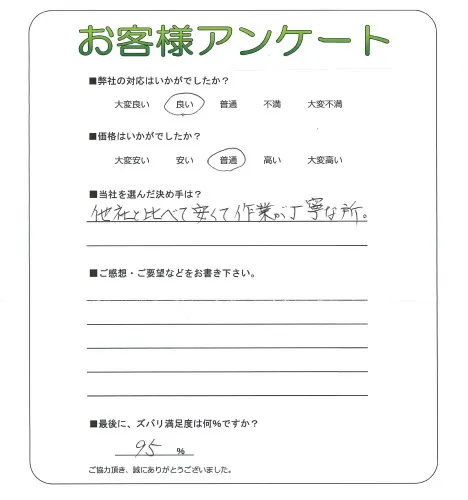 お客様アンケート
■弊社の対応はいかがでしたか？
大変良い 良い 普通 不満 大変不満
■価格はいかがでしたか？
大変安い 安い 普通 高い 大変高い
■当社を選んだ決め手は？
他社と比べて安くて作業が丁寧な所。
■ご感想・ご要望などをお書き下さい。
■最後に、ズバリ満足度は何%ですか？
95 %
ご協力頂き、誠にありがとうございました。